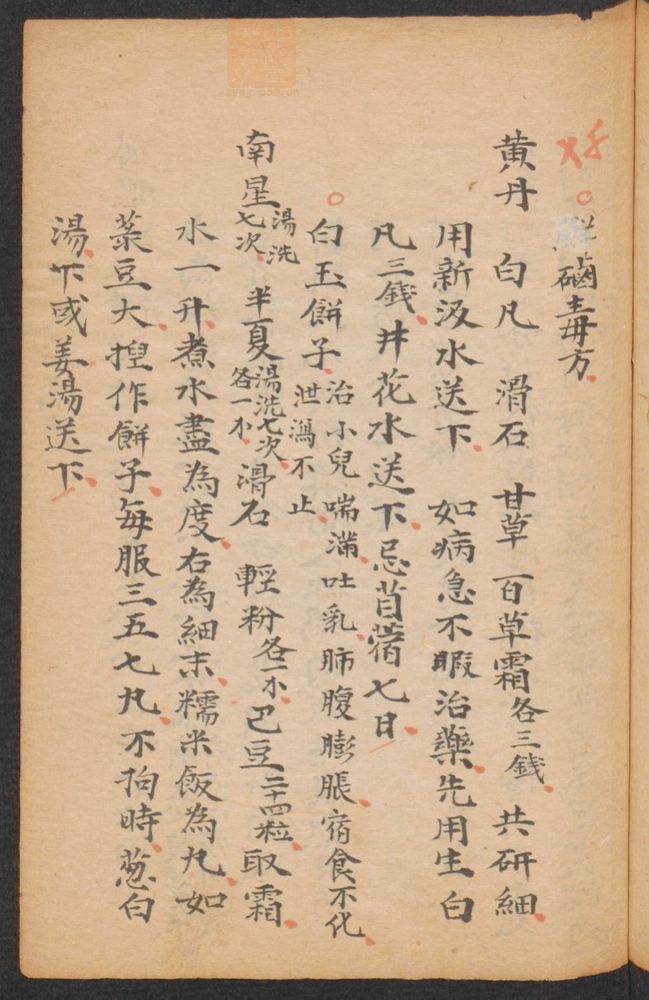 解磠毒方
黄丹 白凡 滑石 甘草 百草霜各三錢 共研細
用新汲水送下 如病急不暇治藥先用生白
凡三錢井花水送下忌苜蓿七日
白玉餅子治小兒喘滿吐乳肺腹膨脹宿食不化泄瀉不止
南星湯洗七次半夏湯洗七次各一小滑石 輕粉各一小巴豆二十四粒取霜
水一升煮水盡為度右為細末糯米飯為丸如
菉豆大揑作餅子每服三五七丸不拘時葱白
湯下或姜湯送下